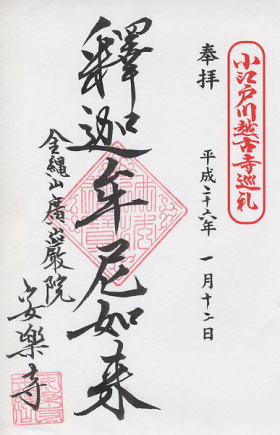 小江戸川越古寺巡礼
奉拝
平成二十六年 一月十二日
釋迦牟尼如来
金縄山廣嚴院
安樂寺